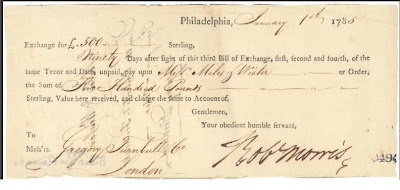 Philadelphia, January 1st 1785
Exchange for £.500 Sterling.
Ninety Days after sight of this third Bill of Exchange, first, second and fourth, of the
same Tenor and Date, unpaid, pay unto Messrs Miles & Wister or Order,
the Sum of Five Hundred Pounds
Sterling, Value here received, and charge the same to Account of,
Gentlemen,
Your obedient humble servant,
To
Mess'rs. Gregory Turnbull & Co
London
Rob Morris